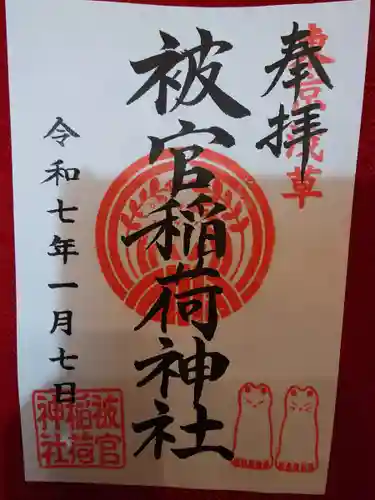 奉拝
東京浅草
被官稲荷神社
令和七年一月七日
被官
稲荷
神社